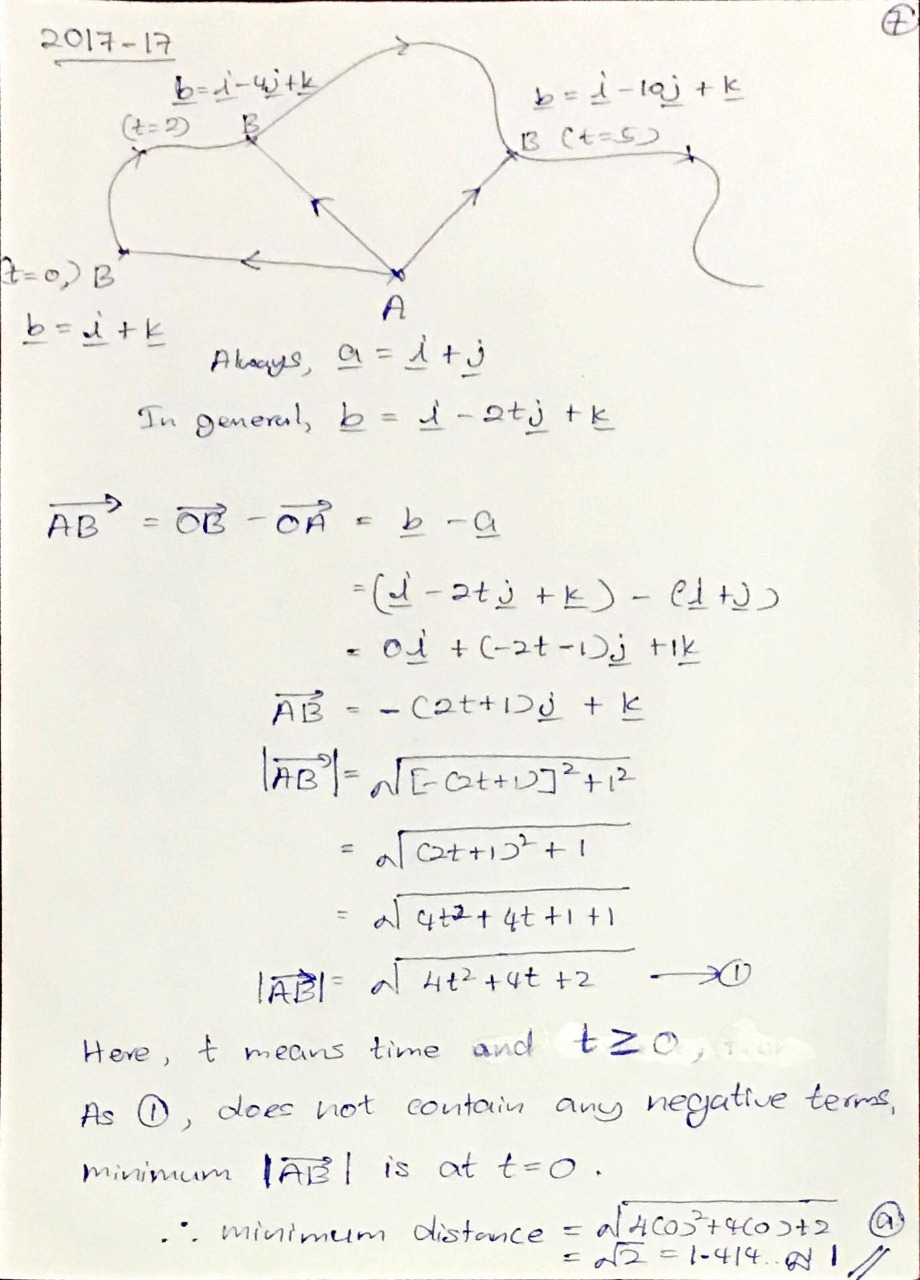 7
2017-17
b = i - 4j + k
b = i - 10j + k
(t=2) B
B (t=5)
(t=0) B
A
b = i + k
Always, a = i + j
In general, b = i - 2tj + k
AB = OB - OA = b - a
= (i - 2tj + k) - (i + j)
= 0i + (-2t-1)j + 1k
AB = -(2t+1)j + k
|AB| = √[-(2t+1)]² + 1²
= √(2t+1)² + 1
= √4t² + 4t + 1 + 1
|AB| = √4t² + 4t + 2 → ①
Here, t means time and t ≥ 0,
As ①, does not contain any negative terms,
minimum |AB| is at t=0.
∴ minimum distance = √4(0)²+4(0)+2 ⓐ
= √2 = 1.414.. ≈ 1 //